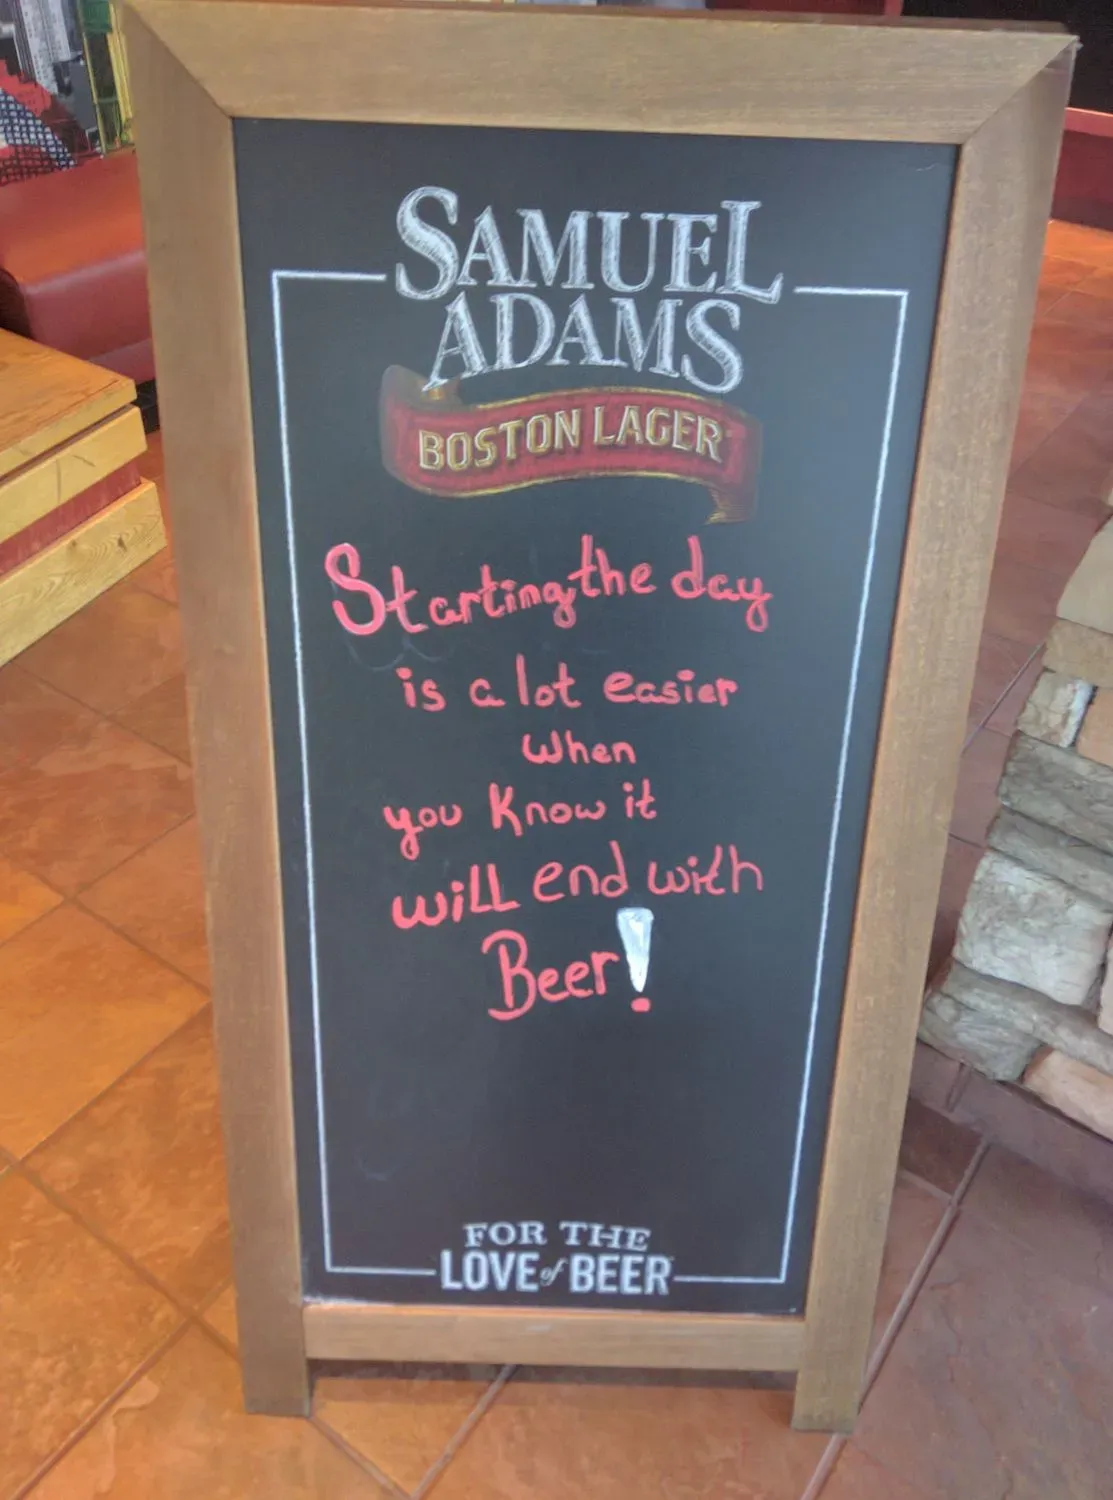 SAMUEL
ADAMS
BOSTON LAGER
Starting the day
is a lot easier
when
you Know it
will end with
Beer!
FOR THE
LOVE of BEER